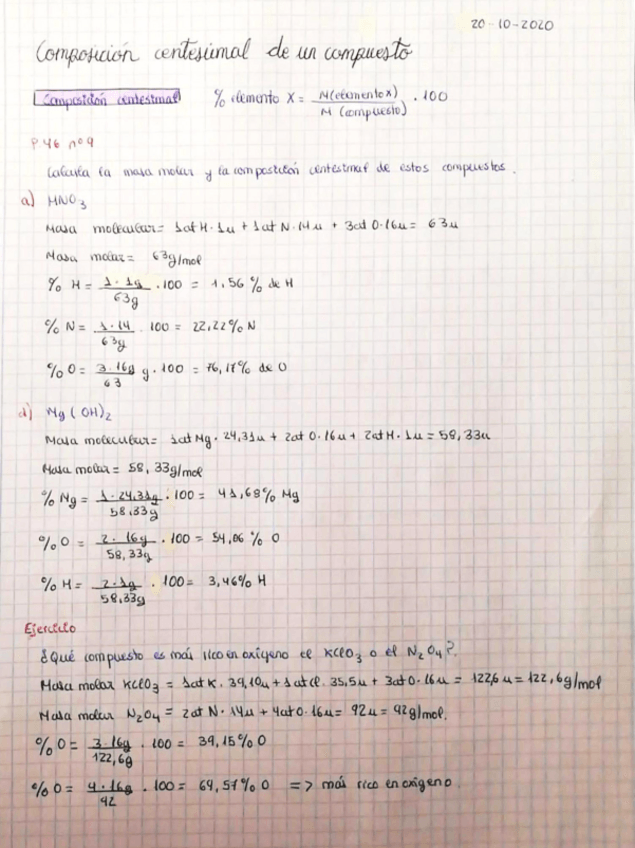 20-10-2020
Composición centesimal de un compuesto
Composición centesimal % elemento X = M(elemento X) / M (compuesto) · 100
P 46 nº 9
Calcula la masa molar y la composición centesimal de estos compuestos.
a) HNO3
Masa molecular = 1 at H · 1u + 1 at N · 14u + 3 at O · 16u = 63u
Masa molar = 63g/mol
% H = 1 · 1g / 63g · 100 = 1,56 % de H
% N = 1 · 14 / 63g · 100 = 22,22% N
% O = 3 · 16g / 63 g · 100 = 76,17% de O
d) Mg (OH)2
Masa molecular = 1 at Mg · 24,31u + 2 at O · 16u + 2 at H · 1u = 58,33u
Masa molar = 58,33g/mol
% Mg = 1 · 24,31g / 58,33g · 100 = 41,68% Mg
% O = 2 · 16g / 58,33g · 100 = 54,06 % O
% H = 2 · 1g / 58,33g · 100 = 3,46% H
Ejercicio
¿Qué compuesto es más rico en oxígeno el KClO3 o el N2O4?.
Masa molar KClO3 = 1 at K · 39,10u + 1 at Cl · 35,5u + 3 at O · 16u = 122,6 u = 122,6g/mol
Masa molar N2O4 = 2 at N · 14u + 4 at O · 16u = 92u = 92g/mol.
% O = 3 · 16g / 122,6g · 100 = 39,15% O
% O = 4 · 16g / 92 · 100 = 69,57% O => más rico en oxígeno.